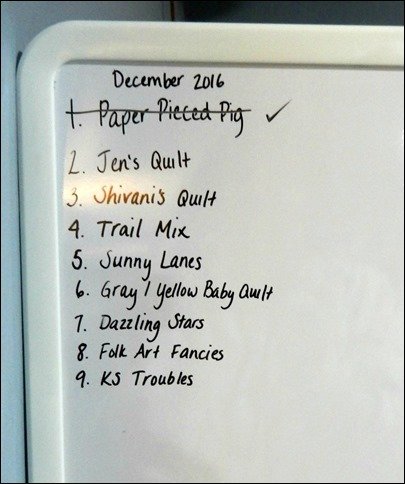 December 2016
1. Paper Pieced Pig ✓
2. Jen's Quilt
3. Shivani's Quilt
4. Trail Mix
5. Sunny Lanes
6. Gray / Yellow Baby Quilt
7. Dazzling Stars
8. Folk Art Fancies
9. KS Troubles